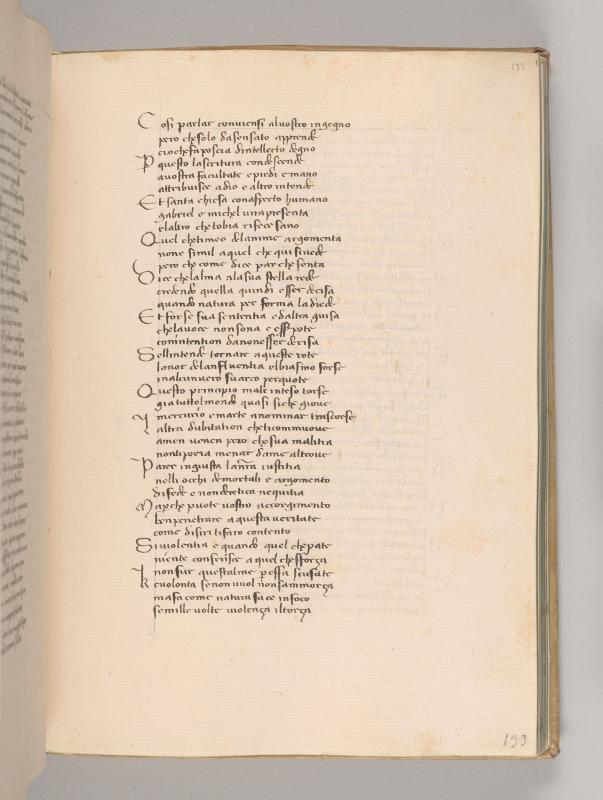 133
Cosi parlar conuiensi aluostro ingegno
pero che solo dasensato apprende
cio che fa poscia dintellecto degno
Per questo lascritura condescende
auostra facultate e piedi e mano
attribuisce adio e altro intende
Et santa chiesa conaspecto humano
gabriel e michel uirapresenta
elaltro che tobia rifece sano
Quel che timeo delanime argomenta
none simil aquel che qui siuede
pero che come dice par che senta
Dice chelalma alasua stella rede
credendo quella quindi esser decisa
quando natura per forma ladiede
Et forse sua sententia e daltra guisa
chelauoce nonsona e esser pote
conintention danonesser derisa
Sellintende tornare aqueste rote
lonor delanfluentia elbiasmo forse
inalcunuero suarco perquote
Questo principio male inteso torse
gia tuttol mondo quasi siche gioue
mercurio e marte anominar trascorse
laltra dubitation cheticommuoue
amen uenen pero che sua malitia
nonti poria menar dame altroue
Parer ingiusta lanostra iustitia
nelli occhi demortali e argomento
di fede e non deretica nequitia
Ma per che puote uostro accorgimento
ben penetrare aquesta ueritate
come disiri tifaro contento
Si uiolentia e quando quel che pate
niente conferisce a quel che sforça
non fur questalme per essa scusate
uolonta senon uuol nonsammorça
mafa come natura face infoco
semille uolte uiolença iltorça
133